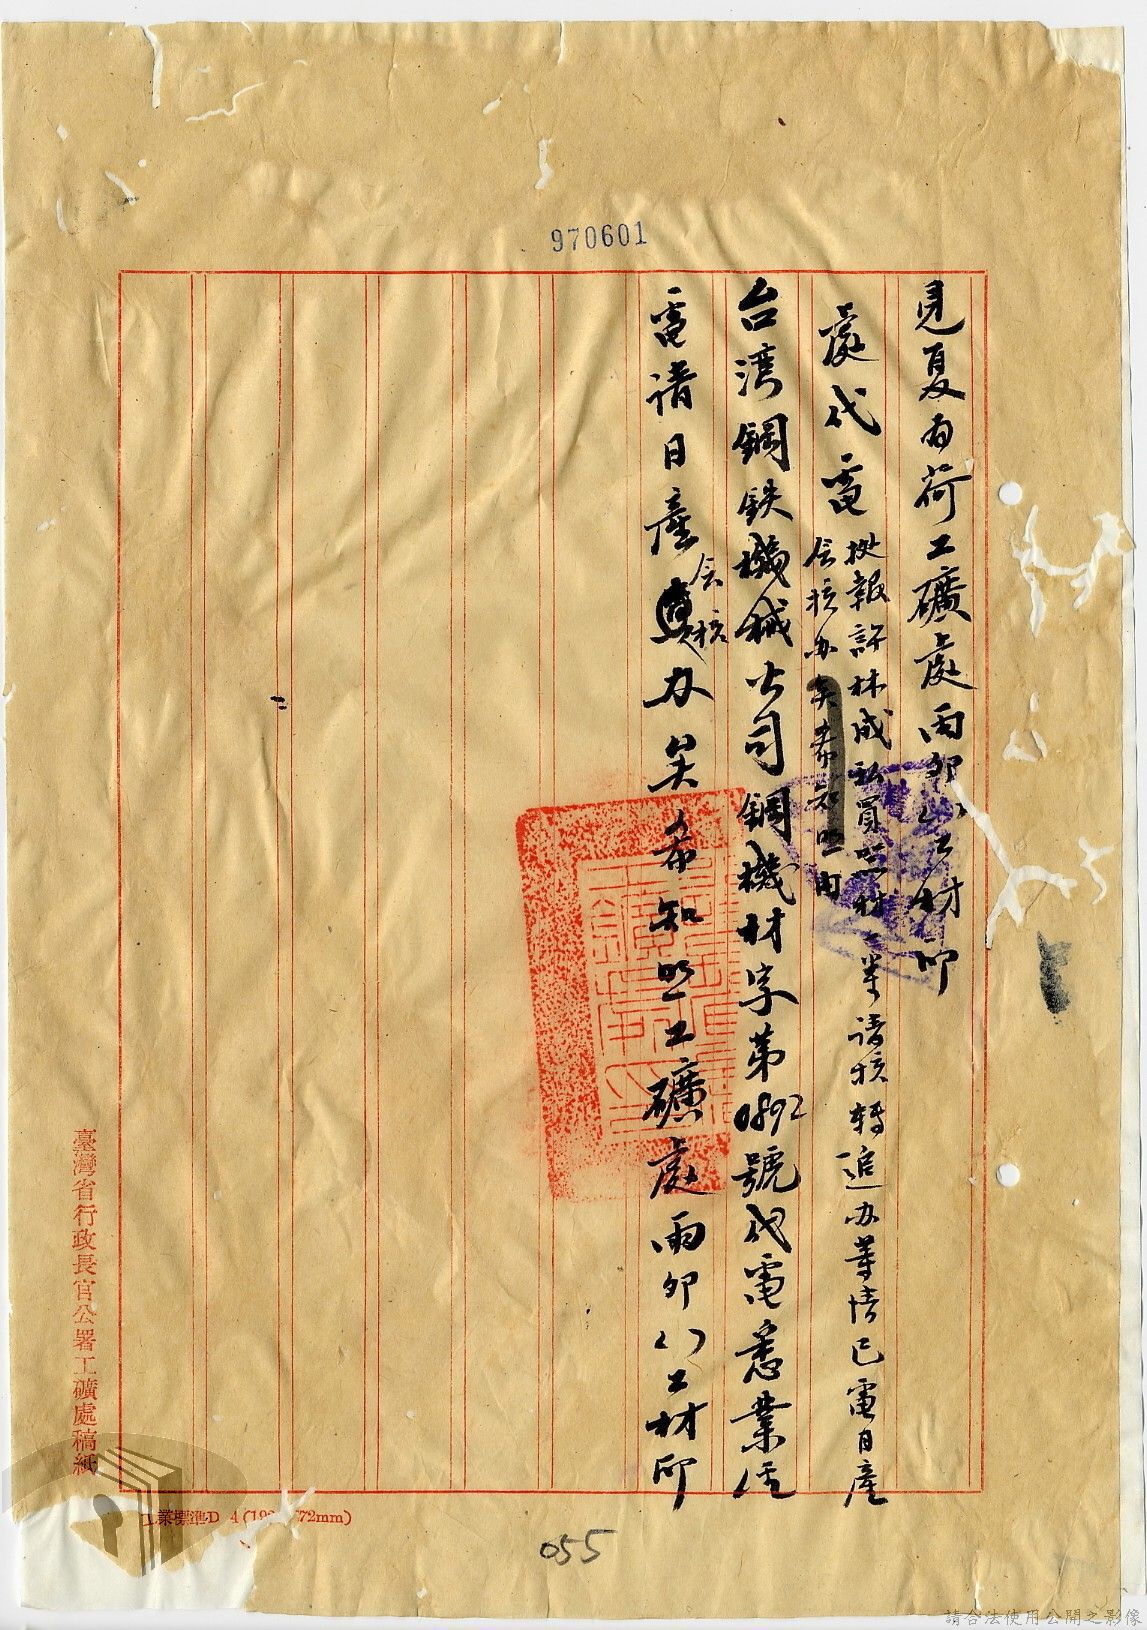 970601
見复为荷工礦處丙卯 工材印
處代電
拠報許林成私買 材 案請核轉追办等情已電日產
会核办矣希知照由
台湾鋼鉄機械公司鋼機材字第0892號代電悉業経
電请日產会核办矣希知照工礦處丙卯 工材印
臺灣省行政長官公署工礦處稿紙
業標準D 4
72mm)
055
請合法使用公開之影像